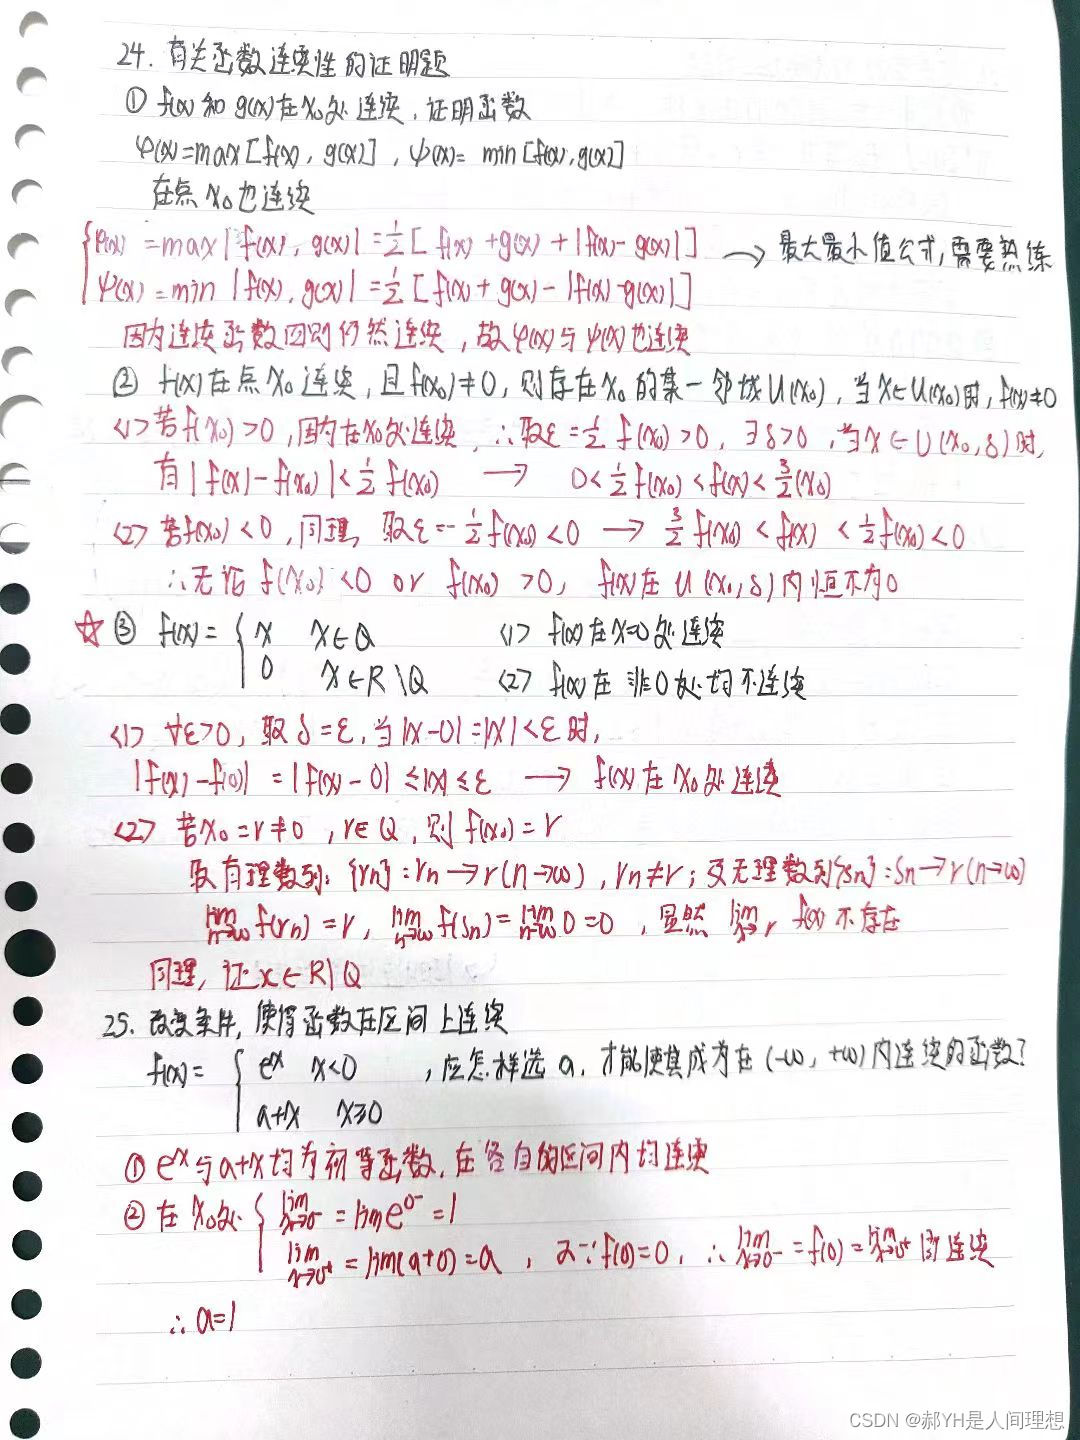 24. 有关函数连续性的证明题
① f(x)和g(x)在x₀处连续,证明函数
φ(x)=max[f(x),g(x)],ψ(x)= min[f(x),g(x)]
在点x₀也连续
φ(x) =max|f(x), g(x)|=½[f(x)+g(x)+|f(x)-g(x)|] → 最大最小值公式,需要熟练
ψ(x)=min |f(x),g(x)|=½[f(x)+g(x)-|f(x)-g(x)|]
因为连续函数四则仍然连续,故φ(x)与ψ(x)也连续
② f(x)在点x₀连续,且f(x₀)≠0,则存在x₀的某一邻域U(x₀),当x∈U(x₀)时,f(x)≠0
<1>若f(x₀)>0,因为在x₀处连续,∴取ε=½f(x₀)>0,∃δ>0,当x∈U(x₀,δ)时,
有|f(x)-f(x₀)|<½f(x₀) → 0<½f(x₀)<f(x)<3/2(x₀)
<2>若f(x₀)<0,同理,取ε=-½f(x₀)<0 → 3/2f(x₀)<f(x)<½f(x₀)<0
∴无论f(x₀)<0 or f(x₀)>0, f(x)在U(x₀,δ)内恒不为0
☆③ f(x)={ x x∈Q <1> f(x)在x=0处连续
0 x∈R\Q <2> f(x)在非0处均不连续
<1> ∀ε>0,取δ=ε,当|x-0|=|x|<ε时,
|f(x)-f(0)|=|f(x)-0|≤|x|≤ε → f(x)在x₀处连续
<2> 若x₀=r≠0,r∈Q,则f(x₀)=r
取有理数列:{rn}:rn→r(n→∞),rn≠r;又无理数列{sn}:sn→r(n→∞)
lim n→∞ f(rn)=r, lim n→∞ f(sn)=lim n→∞ 0=0,显然 lim x→r f(x)不存在
同理,证x∈R\Q
25. 改变条件,使得函数在区间上连续
f(x)={ eˣ x<0 ,应怎样选a,才能使其成为在(-∞,+∞)内连续的函数?
a+x x≥0
① eˣ与a+x均为初等函数,在各自的区间内均连续
② 在x₀处{ lim x→0⁻ =lim e⁰⁻=1
lim x→0⁺ =lim(a+0)=a,又∵f(0)=0,∴lim x→0⁻=f(0)=lim x→0⁺ 即连续
∴a=1
CSDN @郝YH是人间理想